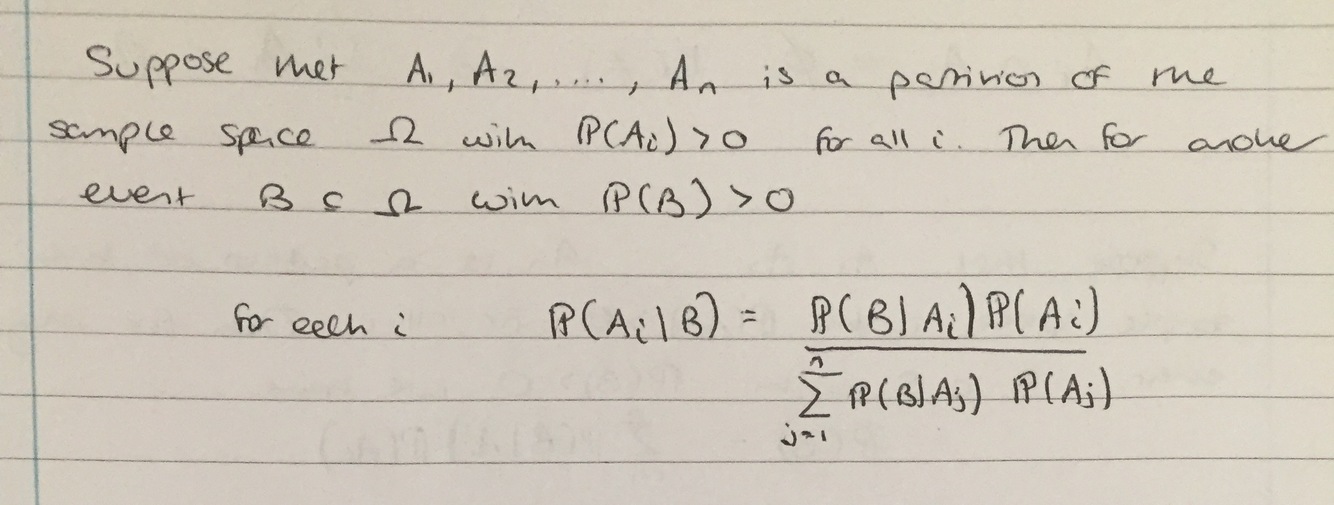 Suppose that A₁, A₂, ...., Aₙ is a partition of the
sample space Ω with ℙ(Aᵢ) > 0 for all i. Then for another
event B ⊂ Ω with ℙ(B) > 0
for each i ℙ(Aᵢ|B) = ℙ(B|Aᵢ)ℙ(Aᵢ) / ∑ⱼ₌₁ⁿ ℙ(B|Aⱼ) ℙ(Aⱼ)